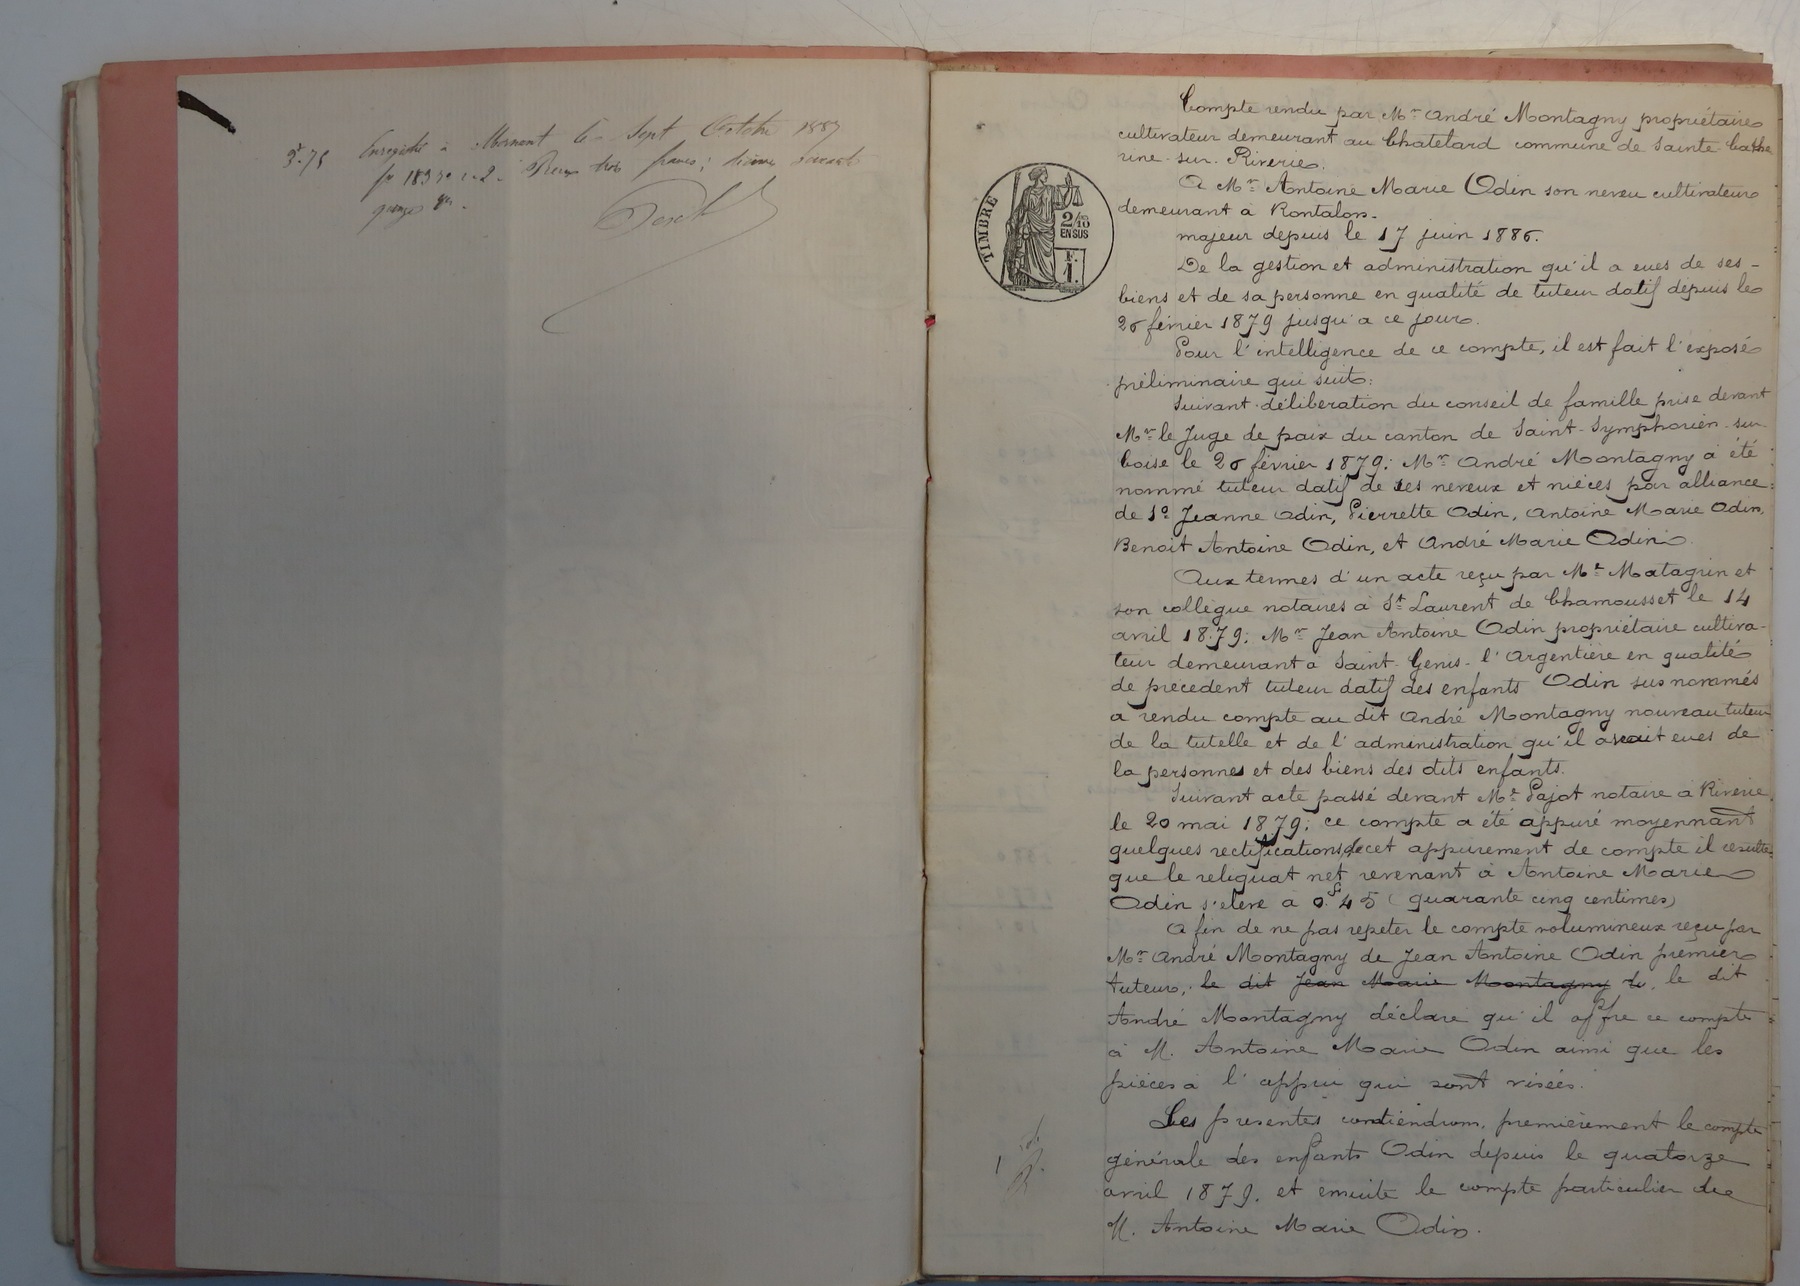 3f.75 Enregistré à Mornant le Sept Octobre 1887
fo 189 Ro c. 2. Reçu trois francs; décimes soixante
quinze ces.
TIMBRE
2/10
EN SUS
F.
1.
Compte rendu par Mr André Montagny propriétaire
cultivateur demeurant au Chatelard commune de Sainte Cathe
rine-sur-Riverie.
A Mr Antoine Marie Odin son neveu cultivateur
demeurant à Rontalon-
majeur depuis le 17 juin 1886.
De la gestion et administration qu'il a eues de ses-
biens et de sa personne en qualité de tuteur datif depuis le
26 février 1879 jusqu'à ce jour.
Pour l'intelligence de ce compte, il est fait l'exposé
préliminaire qui suit:
Suivant délibération du conseil de famille prise devant
Mr le Juge de paix du canton de Saint-Symphorien-sur
Coise le 26 février 1879; Mr André Montagny a été
nommé tuteur datif de ses neveux et nièces par alliance:
de 1o Jeanne Odin, Pierrette Odin, Antoine Marie Odin,
Benoît Antoine Odin, et André Marie Odin.
Aux termes d'un acte reçu par Me Matagrin et
son collègue notaires à St Laurent de Chamousset le 14
avril 1879; Mr Jean Antoine Odin propriétaire cultiva-
teur demeurant à Saint-Genis-l'Argentière en qualité
de précédent tuteur datif des enfants Odin sus nommés
a rendu compte au dit André Montagny nouveau tuteur
de la tutelle et de l'administration qu'il avait eues de
la personne et des biens des dits enfants.
Suivant acte passé devant Me Pajot notaire à Riverie
le 20 mai 1879; ce compte a été appuré moyennant
quelques rectifications, de cet appurement de compte il résulte
que le reliquat net revenant à Antoine Marie
Odin s'élève à 0f.45 (quarante cinq centimes)
A fin de ne pas repeter le compte volumineux reçu par
Mr André Montagny de Jean Antoine Odin premier
tuteur, le dit Jean Marie Montagny le dit
André Montagny déclare qu'il offre ce compte
à M. Antoine Marie Odin ainsi que les
pièces à l'appui qui sont visées.
Les présentes contiendrons, premièrement le compte
générale des enfants Odin depuis le quatorze
avril 1879, et ensuite le compte particulier de
M. Antoine Marie Odin.